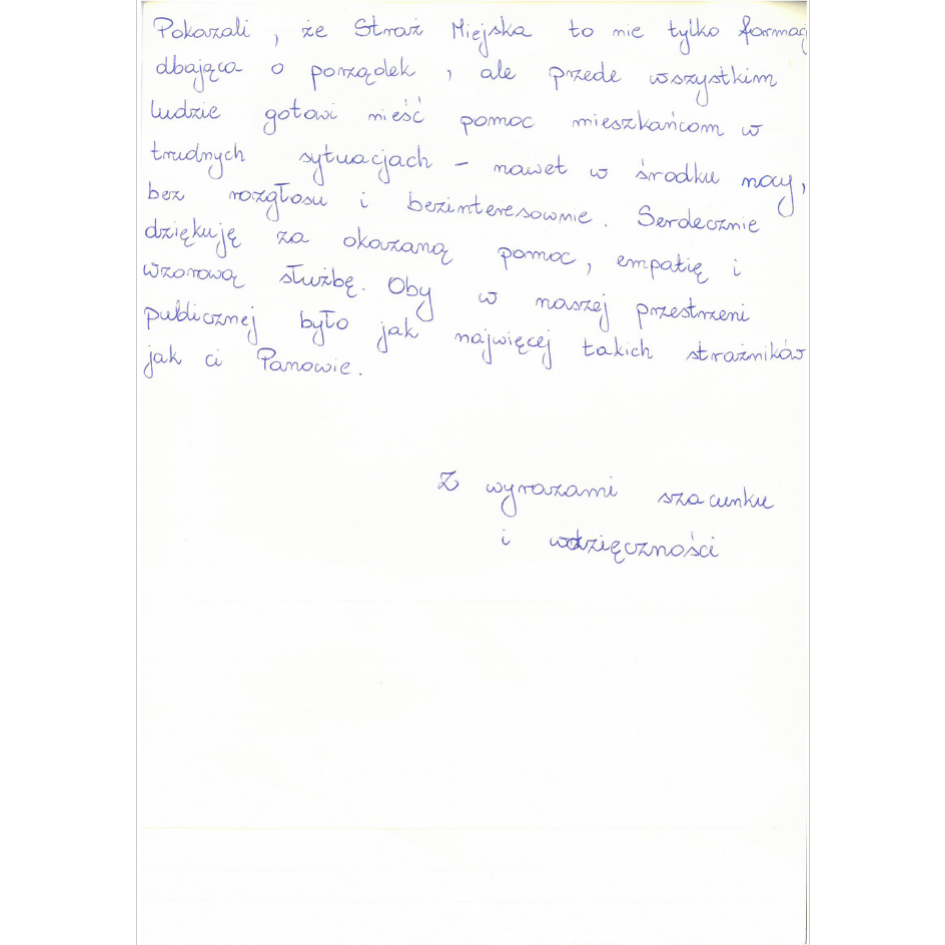 Pokazali, że Straż Miejska to nie tylko formac
dbająca o porządek, ale przede wszystkim
ludzie gotowi nieść pomoc mieszkańcom w
trudnych sytuacjach - nawet w środku nocy,
bez rozgłosu i bezinteresownie. Serdecznie
dziękuję za okazaną pomoc, empatię i
wzorową służbę. Oby w naszej przestrzeni
publicznej było jak najwięcej takich strażników
jak ci Panowie.
Z wyrazami szacunku
i wdzięczności